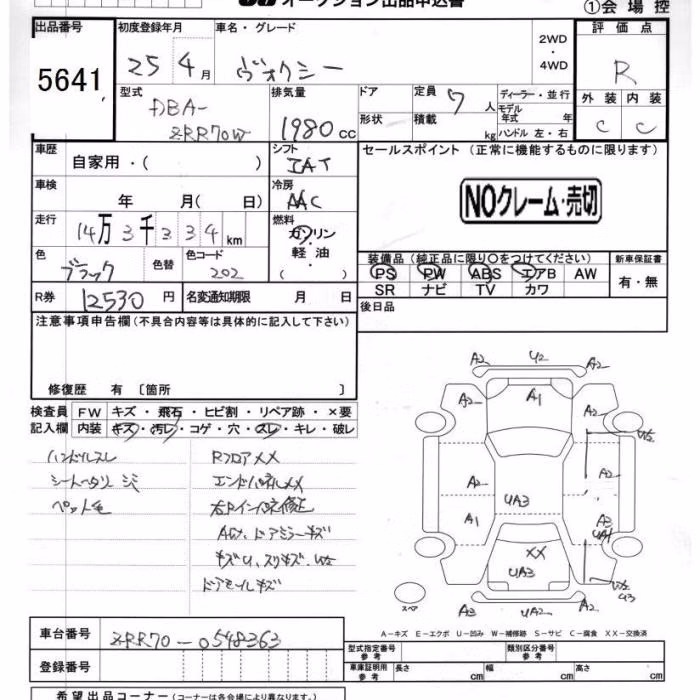 オークション出品申込書
①会場控
出品番号
5641
初度登録年月
25 4月
車名・グレード
ヴォクシー
2WD
・
4WD
評価点
R
外装 内装
C C
型式
DBA-
ZRR70W
排気量
1980 cc
ドア
形状
定員 7人
積載 kg
ディーラー・並行
モデル
年式 年
ハンドル 左・右
車歴
自家用・( )
シフト
IAT
セールスポイント (正常に機能するものに限ります)
NOクレーム・売切
車検
年 月( 日)
冷房
AAC
走行
14万3千334km
燃料
ガソリン
・
軽油
・
( )
色
ブラック
色替
色コード
202
装備品 (純正品に限り○をつけてください)
PS PW ABS エアB AW
SR ナビ TV カワ
新車保証書
有・無
R券
12530円
名変通知期限 月 日
後日品
注意事項申告欄(不具合内容等は具体的に記入して下さい)
修復歴 有〔箇所 〕
検査員
記入欄
FW キズ・飛石・ヒビ割・リペア跡・×要
内装 キズ・汚レ・コゲ・穴・スレ・キレ・破レ
ハンドルスレ
シートヘタリ シミ
ペット毛
RフロアXX
エンドパネルXX
右Rインパネ修正
AW、ドアミラーキズ
キズU、スリキズ、W2
ドアモールキズ
A2 U2 A2
A2 A1 A2
W2
A2 A2
UA3
A1 A3
UA1
XX
UA3
W2
U3
スペア
A3 UA2 A2
A-キズ E-エクボ U-凹み W-補修跡 S-サビ C-腐食 XX-交換済
車台番号
ZRR70-0548363
登録番号
型式指定番号
参考
類別区分番号
参考
車庫証明用
参考
長さ cm
幅 cm
高さ cm
希望出品コーナー(コーナーは各会場により異なります。)